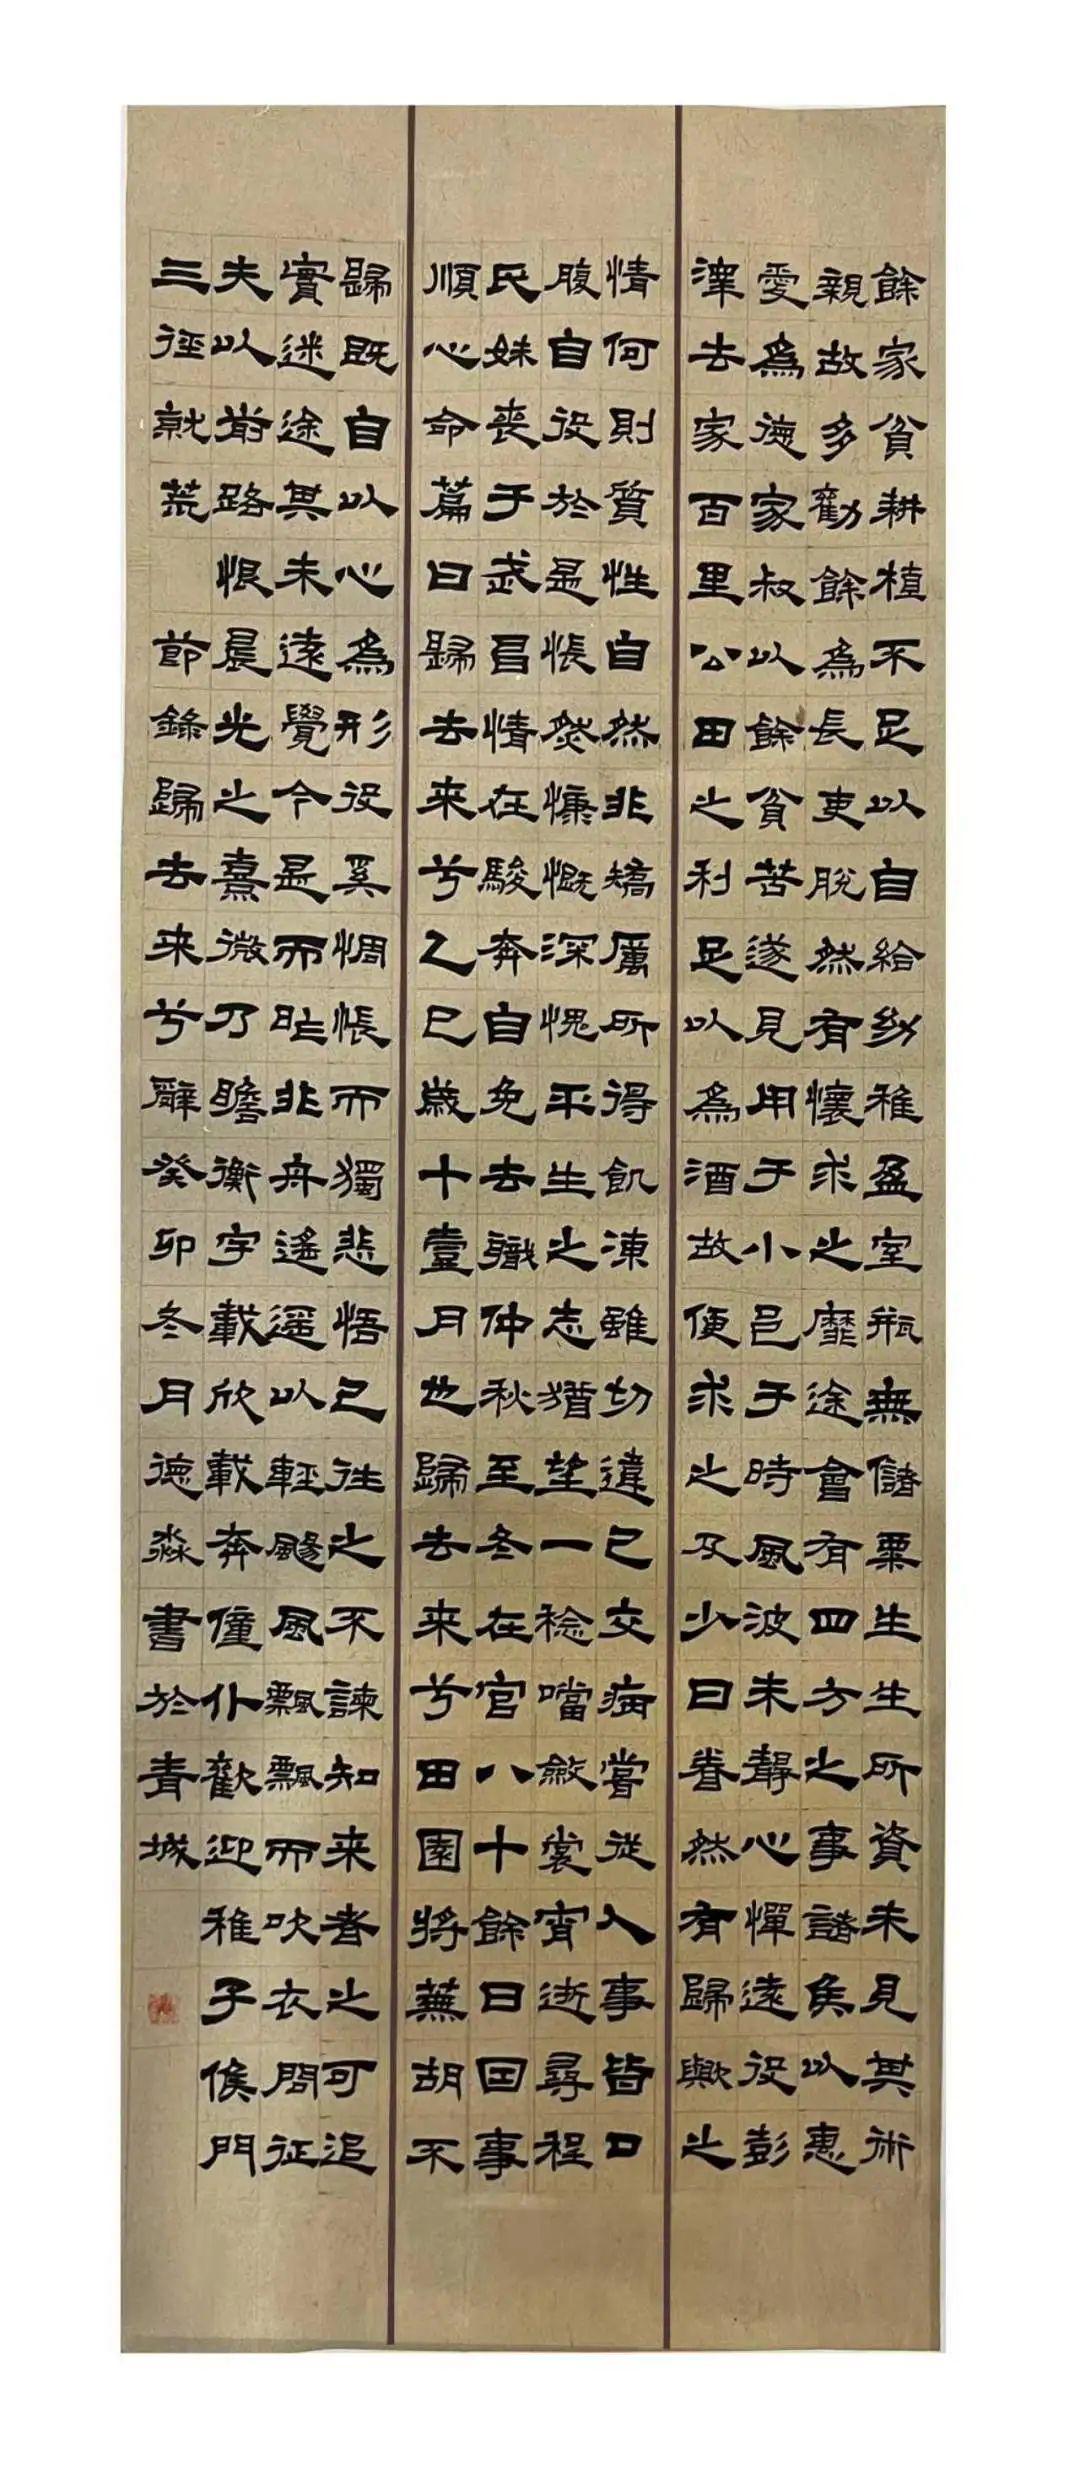 餘家貧耕植不足以自給幼稚盈室瓶無儲粟生生所資未見其術
親故多勸餘為長吏脫然有懷求之靡途會有四方之事諸侯以惠
愛為德家叔以餘貧苦遂見用于小邑于時風波未靜心憚遠役彭
澤去家百里公田之利足以為酒故便求之及少日眷然有歸歟之
情何則質性自然非矯厲所得飢凍雖切違己交病嘗從人事皆口
腹自役於是悵然慷慨深愧平生之志猶望一稔噹斂裳宵逝尋程
氏妹喪于武昌情在駿奔自免去職仲秋至冬在官八十餘日因事
順心命篇曰歸去來兮乙巳歲十壹月也歸去来兮田園將蕪胡不
歸既自以心為形役奚惆悵而獨悲悟已往之不諫知来者之可追
實迷途其未遠覺今是而昨非舟遙遙以輕颺風飄飄而吹衣問征
夫以前路恨晨光之熹微乃瞻衡宇載欣載奔僮仆歡迎稚子候門
三徑就荒 節錄歸去来兮辭癸卯冬月德淼書於青城